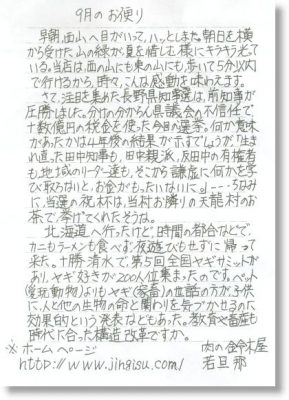 9月のお便り
早朝、西山へ目がいて、ハッとしました。朝日を横
から受けた山の緑が、夏を惜しむ様にキラキラ光っ
ている。当店は、西の山にも東の山にも、歩いて5分以内
で行けるから、時々、こんな感動を味わえます。
さて、注目を集めた長野県知事選は、前知事が
圧勝しました。分けの分からん県議会の不信任で
十数億円の税金を使った今回の選挙。何か意味
があったかは4年後の結果が示すでしょうが、「生ま
れ直った田中知事も、田中親派、反田中の有権者
も、地域のリーダー達も、そこから謙虚に何かを学
び取らないと、お金がもったいないに」。---ちなみ
に、当選の祝杯は、当村お隣りの天龍村のお
茶で、挙げてくれたそうな。
北海道へ行ったけど、時間の都合などで、
カニもラーメンも食べず、夜遊びもせずに帰って
来た。十勝清水で、第5回全国ヤギサミットが
あり、ヤギ好きが200人位集まったのです。ペット
(愛玩動物)よりもヤギ(家畜)の世話の方が、子供
に、人と他の生物の命と関わりを気づかせるのに
効果的という発表などもあった。教育や畜産も
時代に合った構造改革ですか。
※ホームページ 肉の鈴木屋
http://www.jingisu.com/ 若旦那